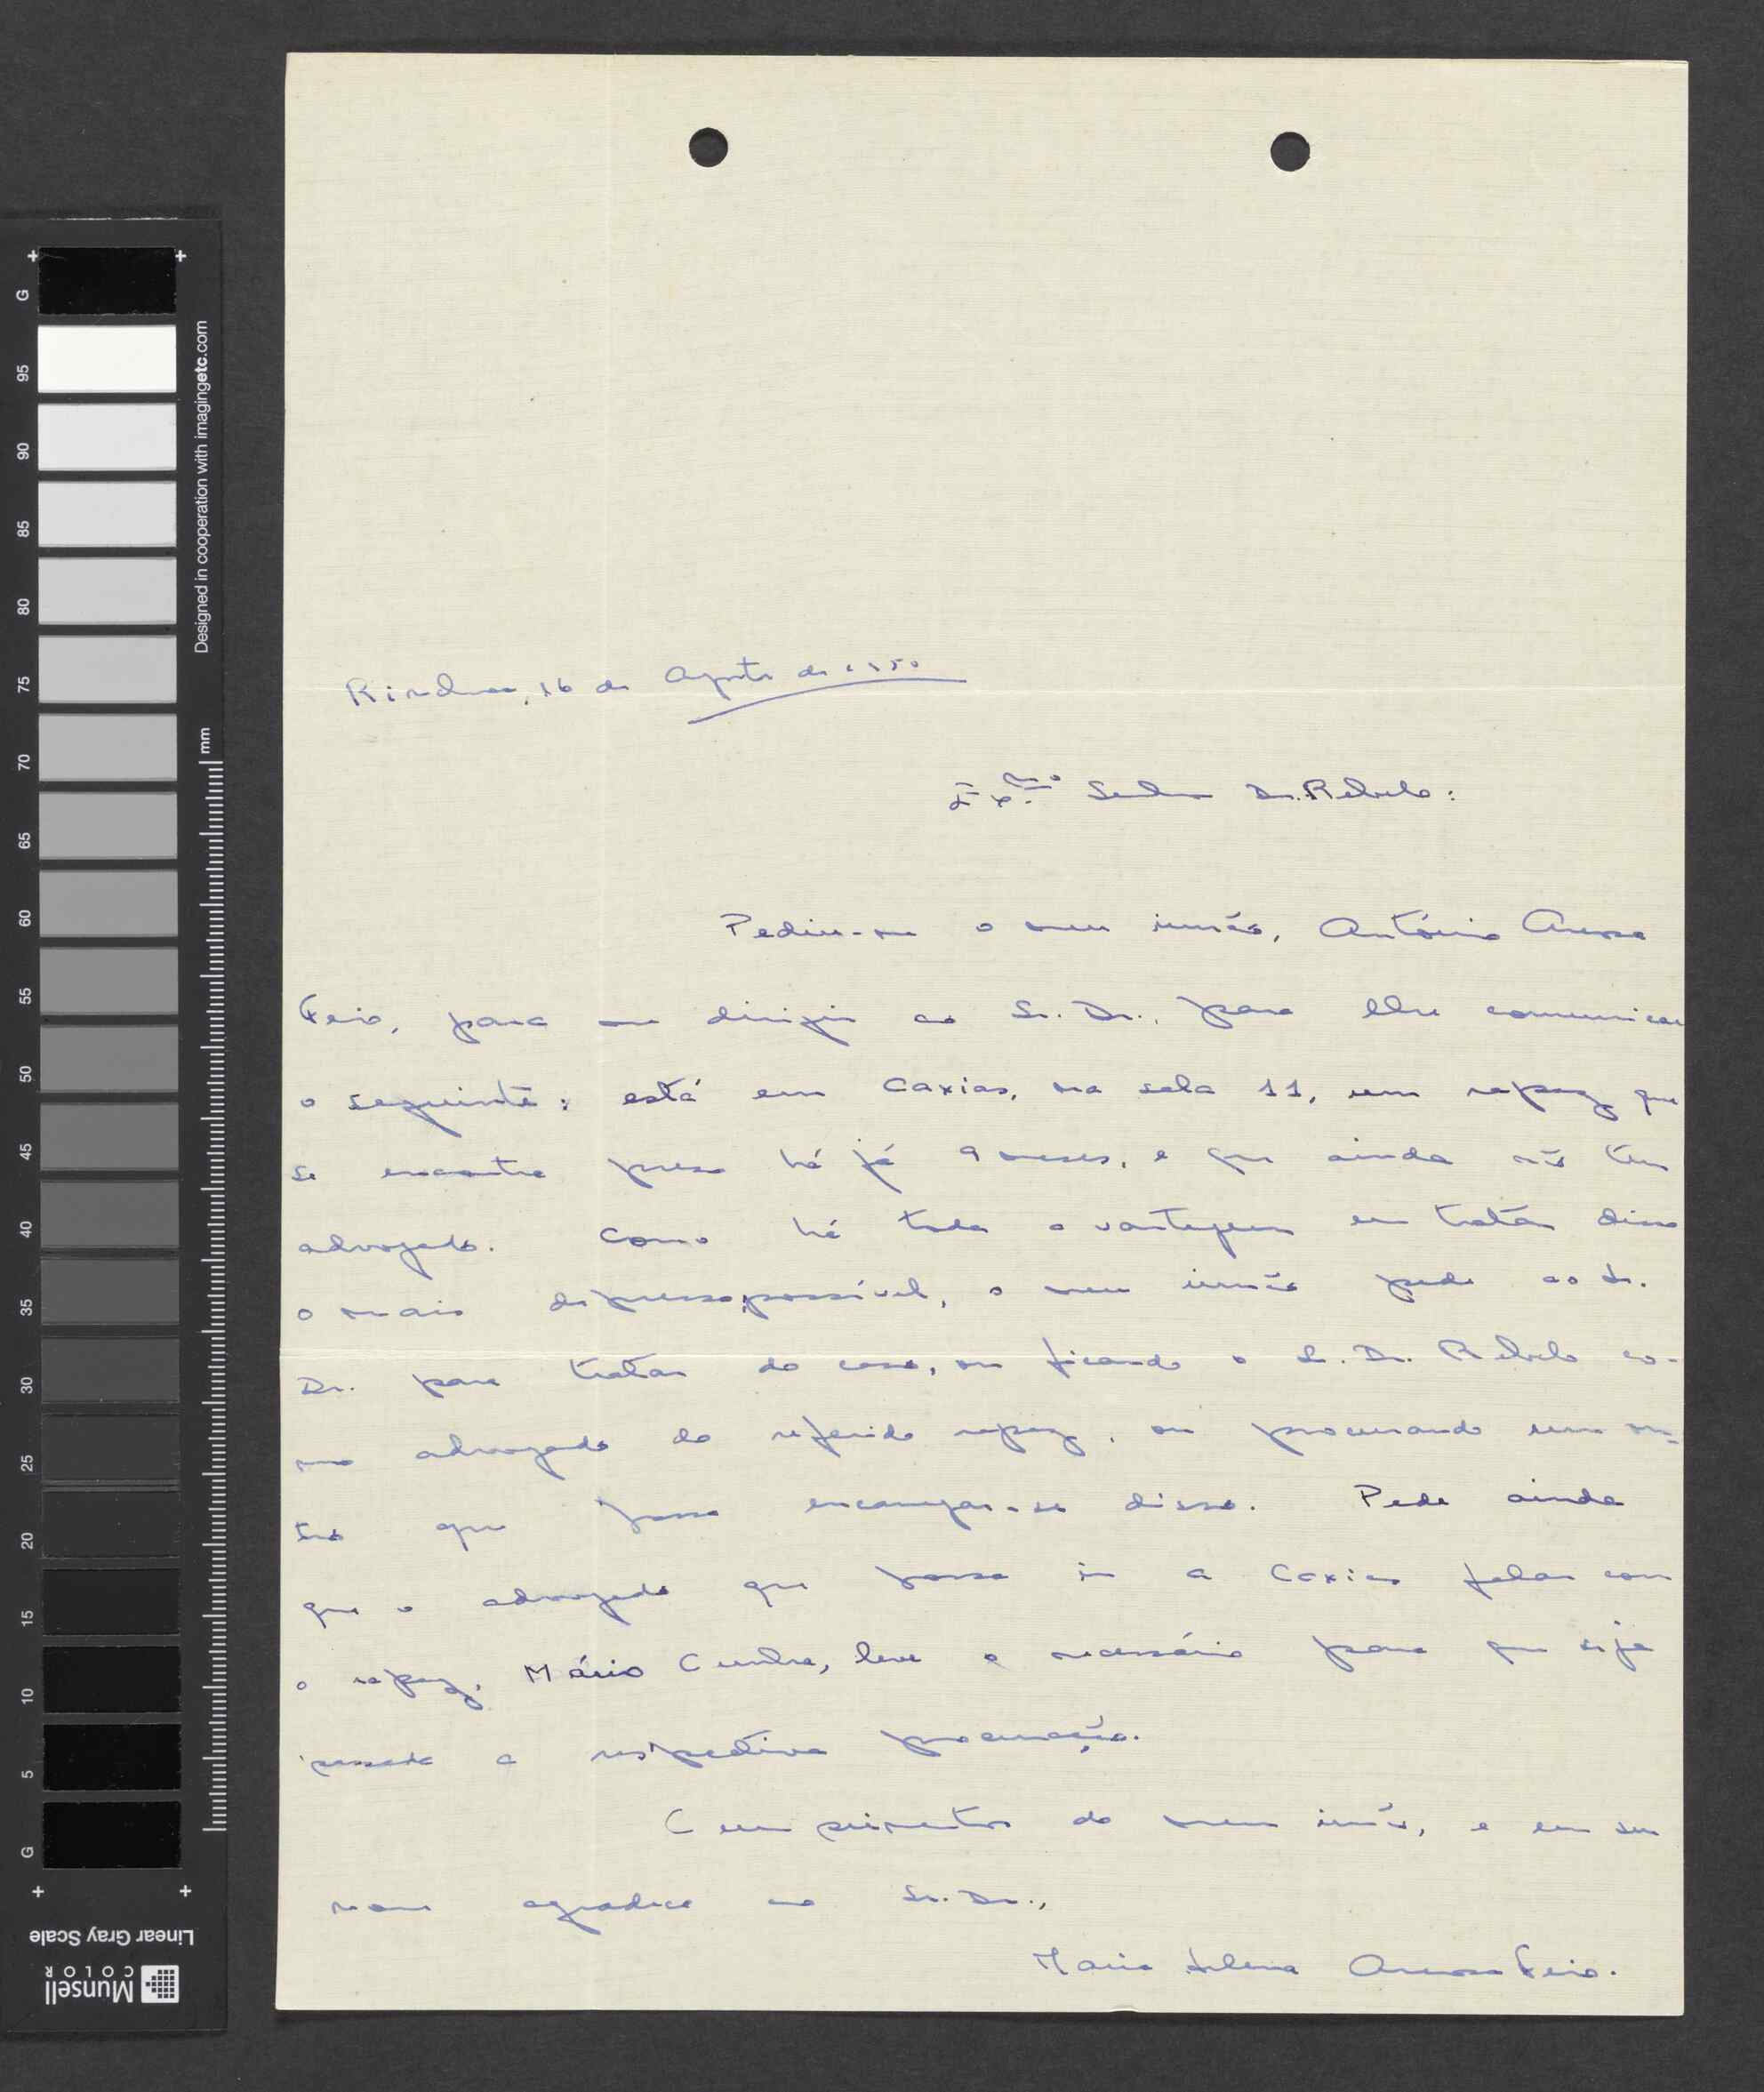 Rinchoa, 16 de Agosto de 1950
Exmo Senhor Dr. Rebelo:
Pediu-me o meu irmão, António Arosa
Feio, para me dirigir ao Sr. Dr., para lhe comunicar
o seguinte: está em Caxias, na sala 11, um rapaz que
se encontra preso há já 9 meses, e que ainda não tem
advogado. Como há toda a vantagem em tratar disso
o mais depressa possível, o meu irmão pede ao Sr.
Dr. para tratar do caso, ou ficando o Sr. Dr. Rebelo co-
mo advogado do referido rapaz, ou procurando um ou-
tro que possa encarregar-se disso. Pede ainda
que o advogado que possa ir a Caxias falar com
o rapaz, Mário Cunha, leve o necessário para que seja
passada a respectiva procuração.
Cumprimentos do meu irmão, e em seu
nome agradece ao Sr. Dr.,
Maria Helena Arosa Feio.
G 95 90 85 80 75 70 65 60 55 50 45 40 35 30 25 20 15 10 5 G
Designed in cooperation with imagingetc.com
mm
Linear Gray Scale
Munsell
COLOR